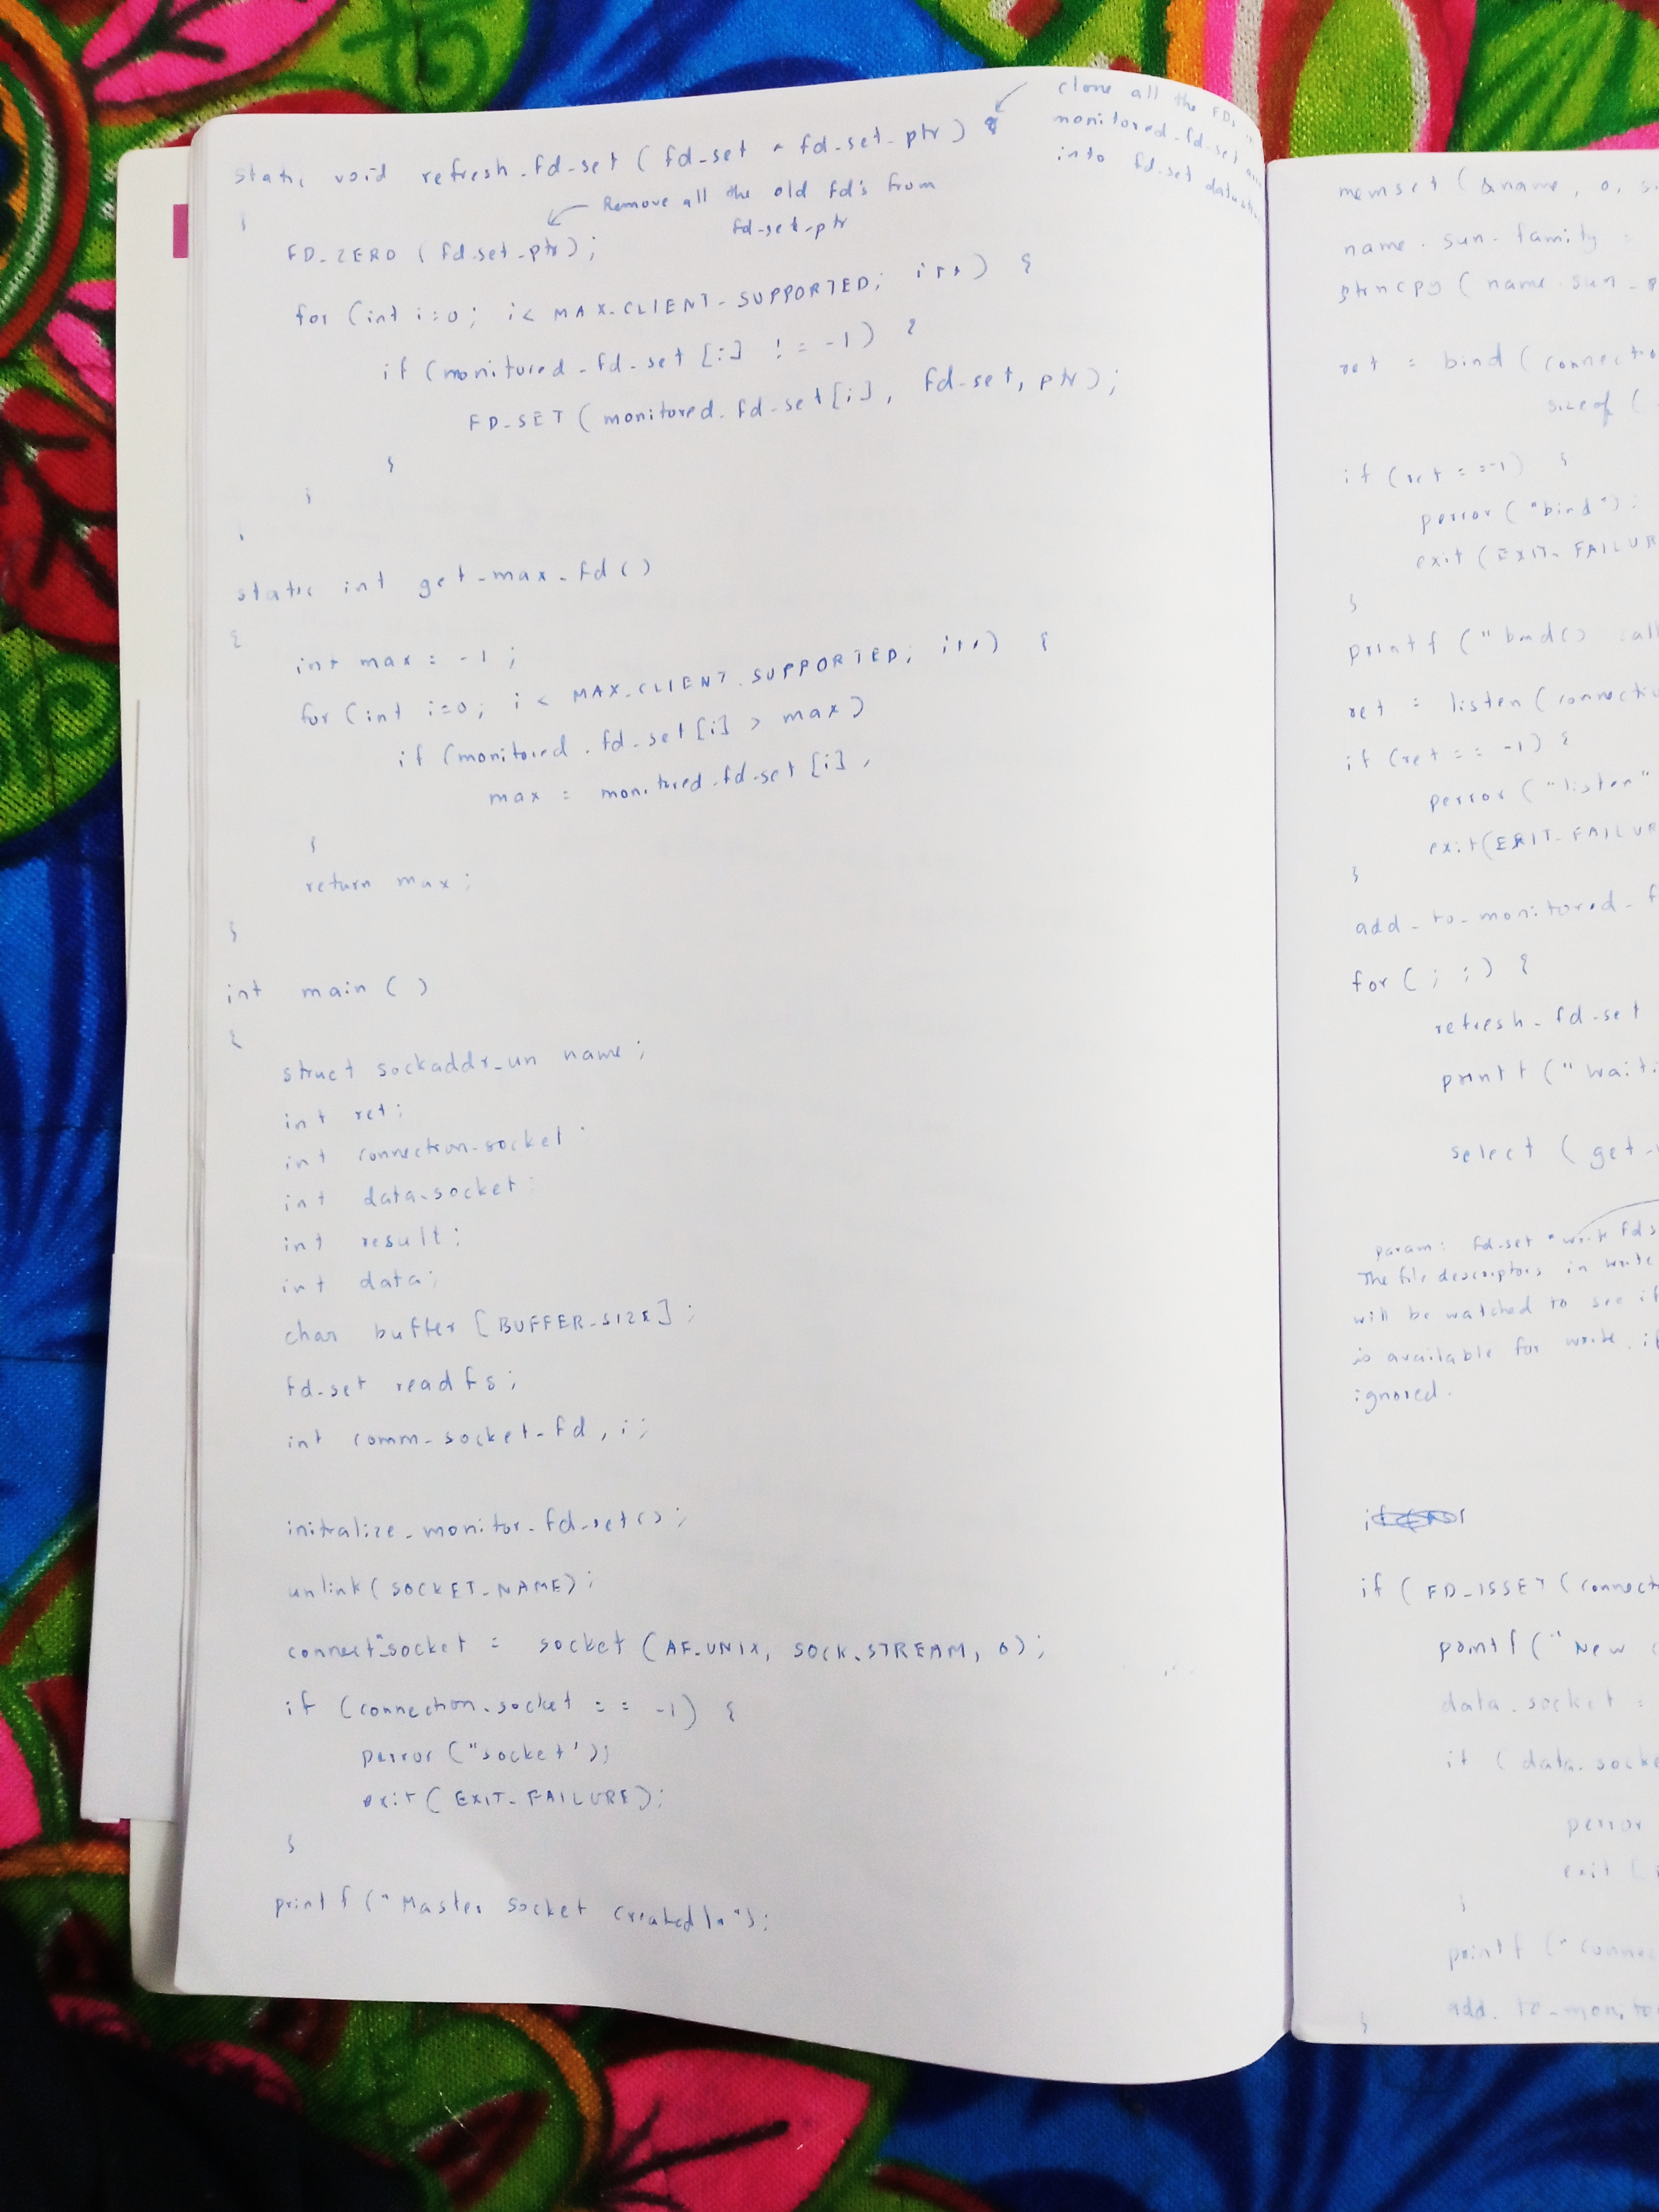 clone all the FDs
monitored_fd_set
into fd_set
static void refresh_fd_set ( fd_set * fd_set_ptr )
{
Remove all the old fd's from
fd_set_ptr
FD_ZERO ( fd_set_ptr );
for (int i=0; i< MAX_CLIENT_SUPPORTED; i++) {
if (monitored_fd_set [i] != -1) {
FD_SET ( monitored_fd_set[i], fd_set, ptr );
}
}
static int get_max_fd()
{
int max = -1 ;
for (int i=0; i < MAX_CLIENT_SUPPORTED; i++) {
if (monitored_fd_set[i] > max)
max = monitored_fd_set [i],
}
return max;
}
int main ( )
{
struct sockaddr_un name ;
int ret;
int connection_socket
int data_socket
int result ;
int data ;
char buffer [ BUFFER_SIZE ] ;
fd_set readfs ;
int comm_socket_fd , i ;
initialize_monitor_fd_set() ;
unlink ( SOCKET_NAME) ;
connect_socket = socket ( AF_UNIX, SOCK_STREAM, 0) ;
if (connection_socket == -1) {
perror ("socket');
exit ( EXIT_FAILURE);
}
printf ("Master socket created\n");
memset ( &name , 0,
name . sun_family =
strncpy ( name . sun_
ret = bind (
sizeof (
if (ret == -1) {
perror ("bind");
exit (EXIT_
}
printf ("bind()
ret = listen (
if (ret == -1) {
perror ("listen"
exit(
}
add_to_monitored_
for ( ; ; ) {
refresh_fd_set
printf ("
select ( get_
param: fd_set * write fds
The file descriptors in write
will be watched to see if
is available for write, if
ignored.
if ( FD_ISSET (
printf (" New
data_socket =
if (
perror
exit (
}
printf ("
add_to_
}